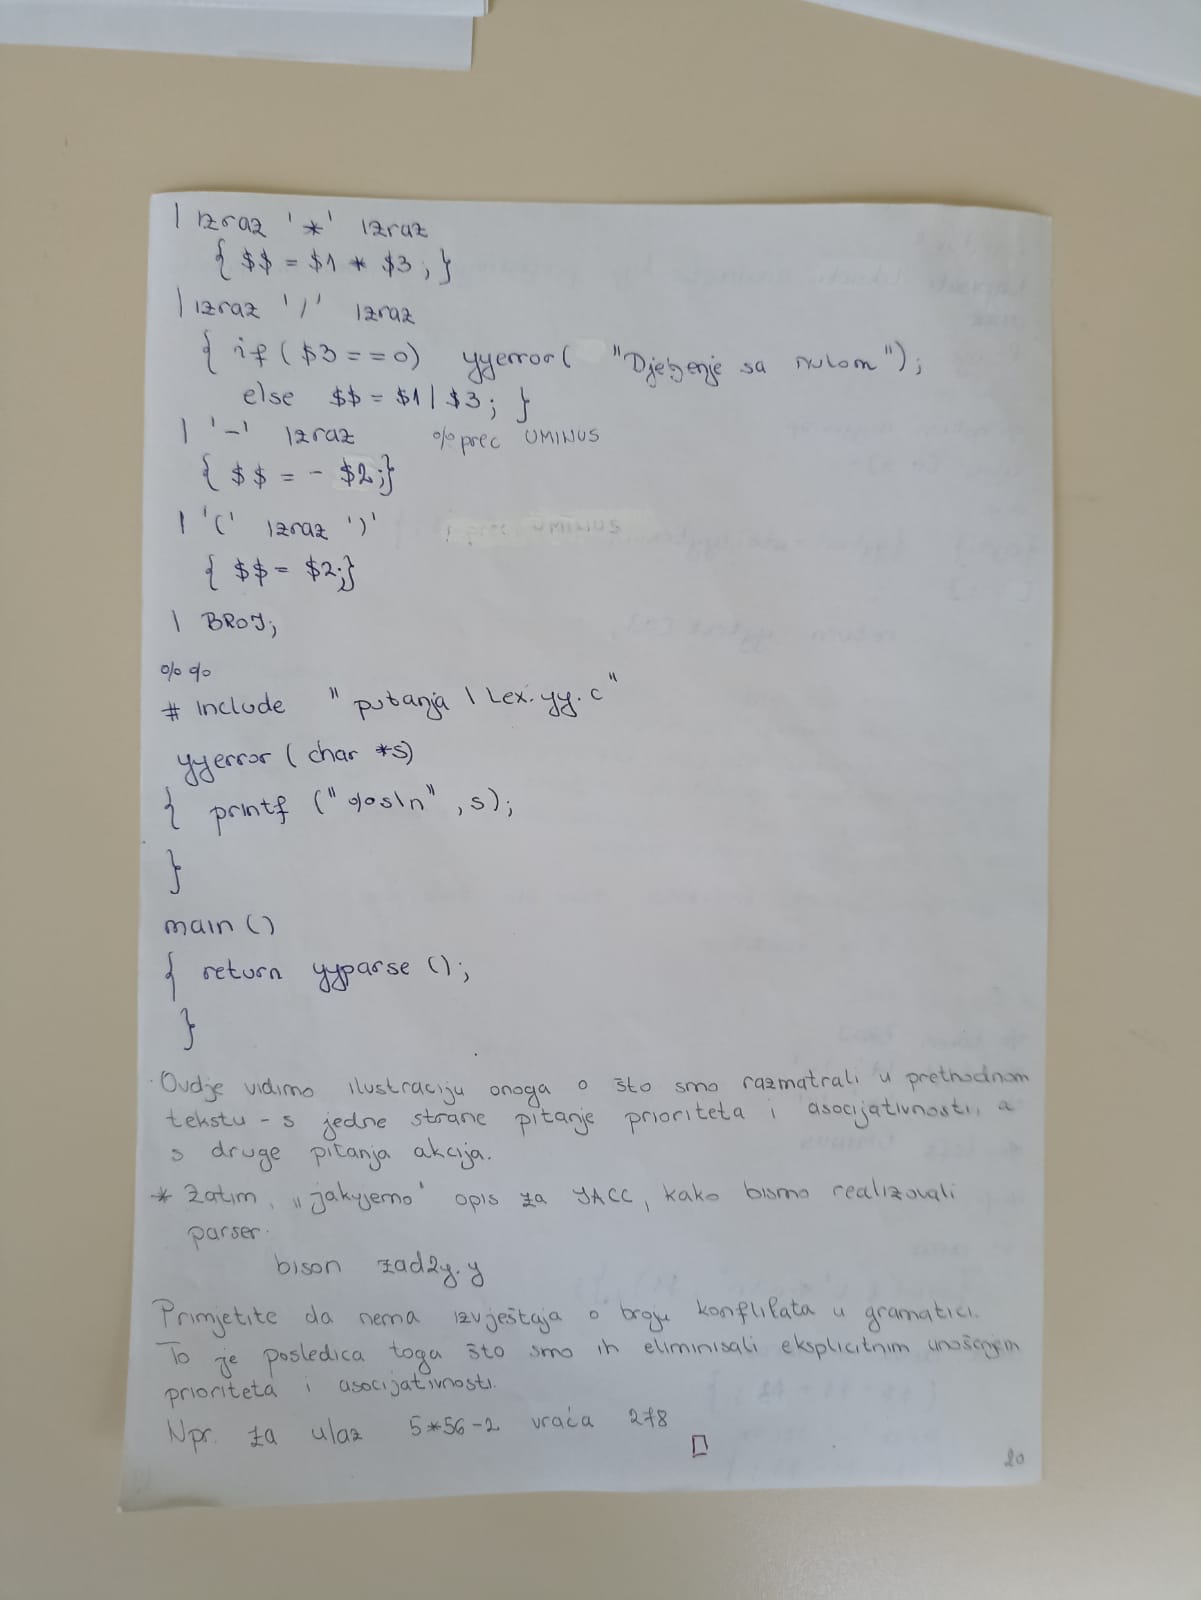 | izraz '*' izraz
{ $$ = $1 * $3 ; }
| izraz '/' izraz
{ if ( $3 == 0) yyerror( "Djeljenje sa nulom");
else $$ = $1 / $3; }
| '-' izraz %prec UMINUS
{ $$ = - $2;}
| '(' izraz ')'
{ $$ = $2;}
| BROJ;
%%
# include "putanja \ Lex.yy.c"
yyerror ( char *s)
{ printf ("%s\n" , s);
}
main ()
{ return yyparse ();
}
Ovdje vidimo ilustraciju onoga o što smo razmatrali u prethodnom
tekstu - s jedne strane pitanje prioriteta i asocijativnosti, a
s druge pitanja akcija.
* Zatim, "jakujemo" opis za YACC, kako bismo realizovali
parser.
bison zad2y.y
Primjetite da nema izvještaja o broju konflikata u gramatici.
To je posledica toga što smo ih eliminisali eksplicitnim unošenjem
prioriteta i asocijativnosti.
Npr. za ulaz 5*56-2 vraća 278
20